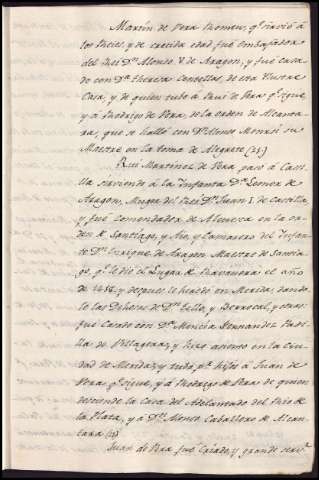 Martin de Vera Romeu, q.e sirvió á
los Treces, y de crecida edad fué Embajador
del Rei D.n Alonso V de Aragon, y fue casa
do con D.a Theresa Centellas, de esta Ilustre
Casa, y de quien tubo á Rui de Vera q.e sigue
y á Rodrigo de Vera, de la Orden de Alcanta
ra, que se halló con D.n Alonso Monroi su
Maestre en la toma de Alegrete (21)
Rui Martinez de Vera pasó á Casti
lla sirviendo á la Infanta D.a Leonor de
Aragon, Muger del Rei D.n Juan I. de Castilla
y fué Comendador de Alcuesca en la or
den de Santiago, y Aio, y Camarero del Infan
te D.n Enrique de Aragon Maestre de Santia
go, q.e le dió el Lugar de Ihavandra el año
de 1438, y despues le heredó en Merida, dando
le las Dehesas de D.n Tello, y Berrocal, y otras
fué Casado con D.a Mencia Hernandez Padi
lla de Villagetas, y hizo asiento en la Ciu
dad de Merida; y tubo p.r hijos á Juan de
Vera, q.e sigue, y á Rodrigo de Vera de quien
desciende la Casa del Adelantado del Rio de
la Plata, y á D.n Alonso Caballero de Alcan
tara
Juan de Vera fué Criado, y grande serv.r